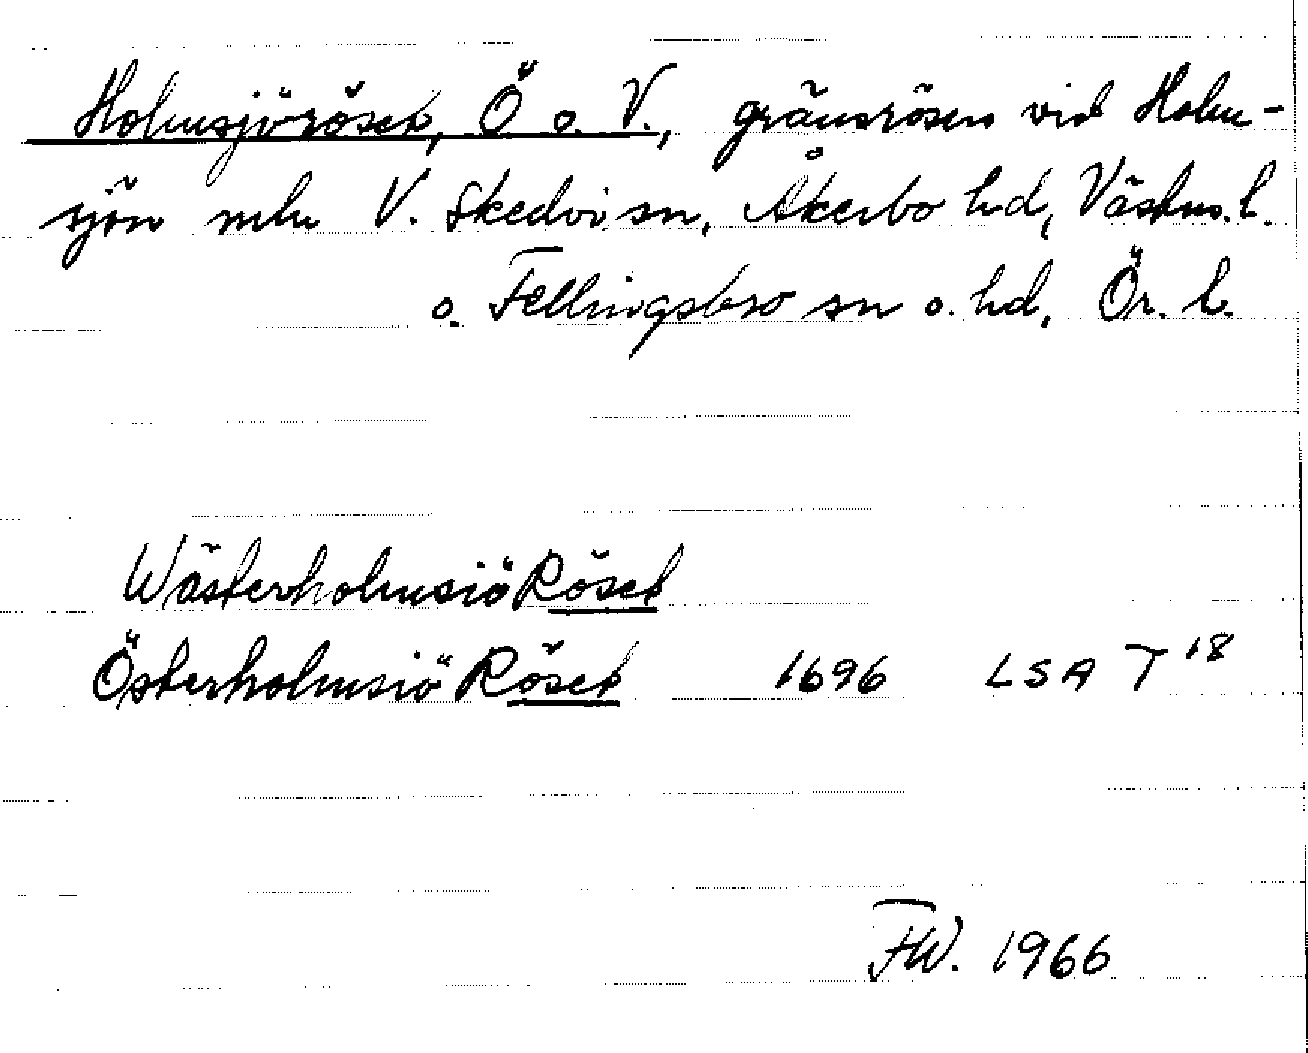 Holmsjöröset, Ö o. V., gränsrösen vid Holm-
sjön mln V. Skedvi sn, Åkerbo hd, Västm. l.
o. Fellingsbro sn o. hd, Ör. l.
WästerholmsiöRöset
ÖsterholmsiöRöset 1696 LSA T 18
FW. 1966